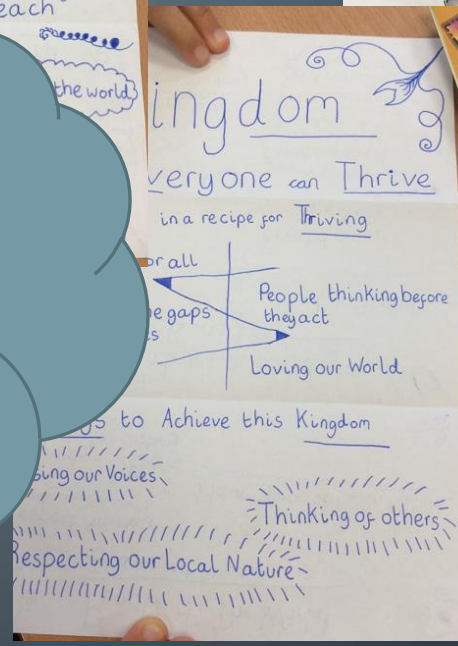 each
the world
ingdom
veryone can Thrive
in a recipe for Thriving
or all
People thinking before
they act
e gaps
s
Loving our World
gs to Achieve this Kingdom
sing our Voices
Thinking of others
Respecting our Local Nature